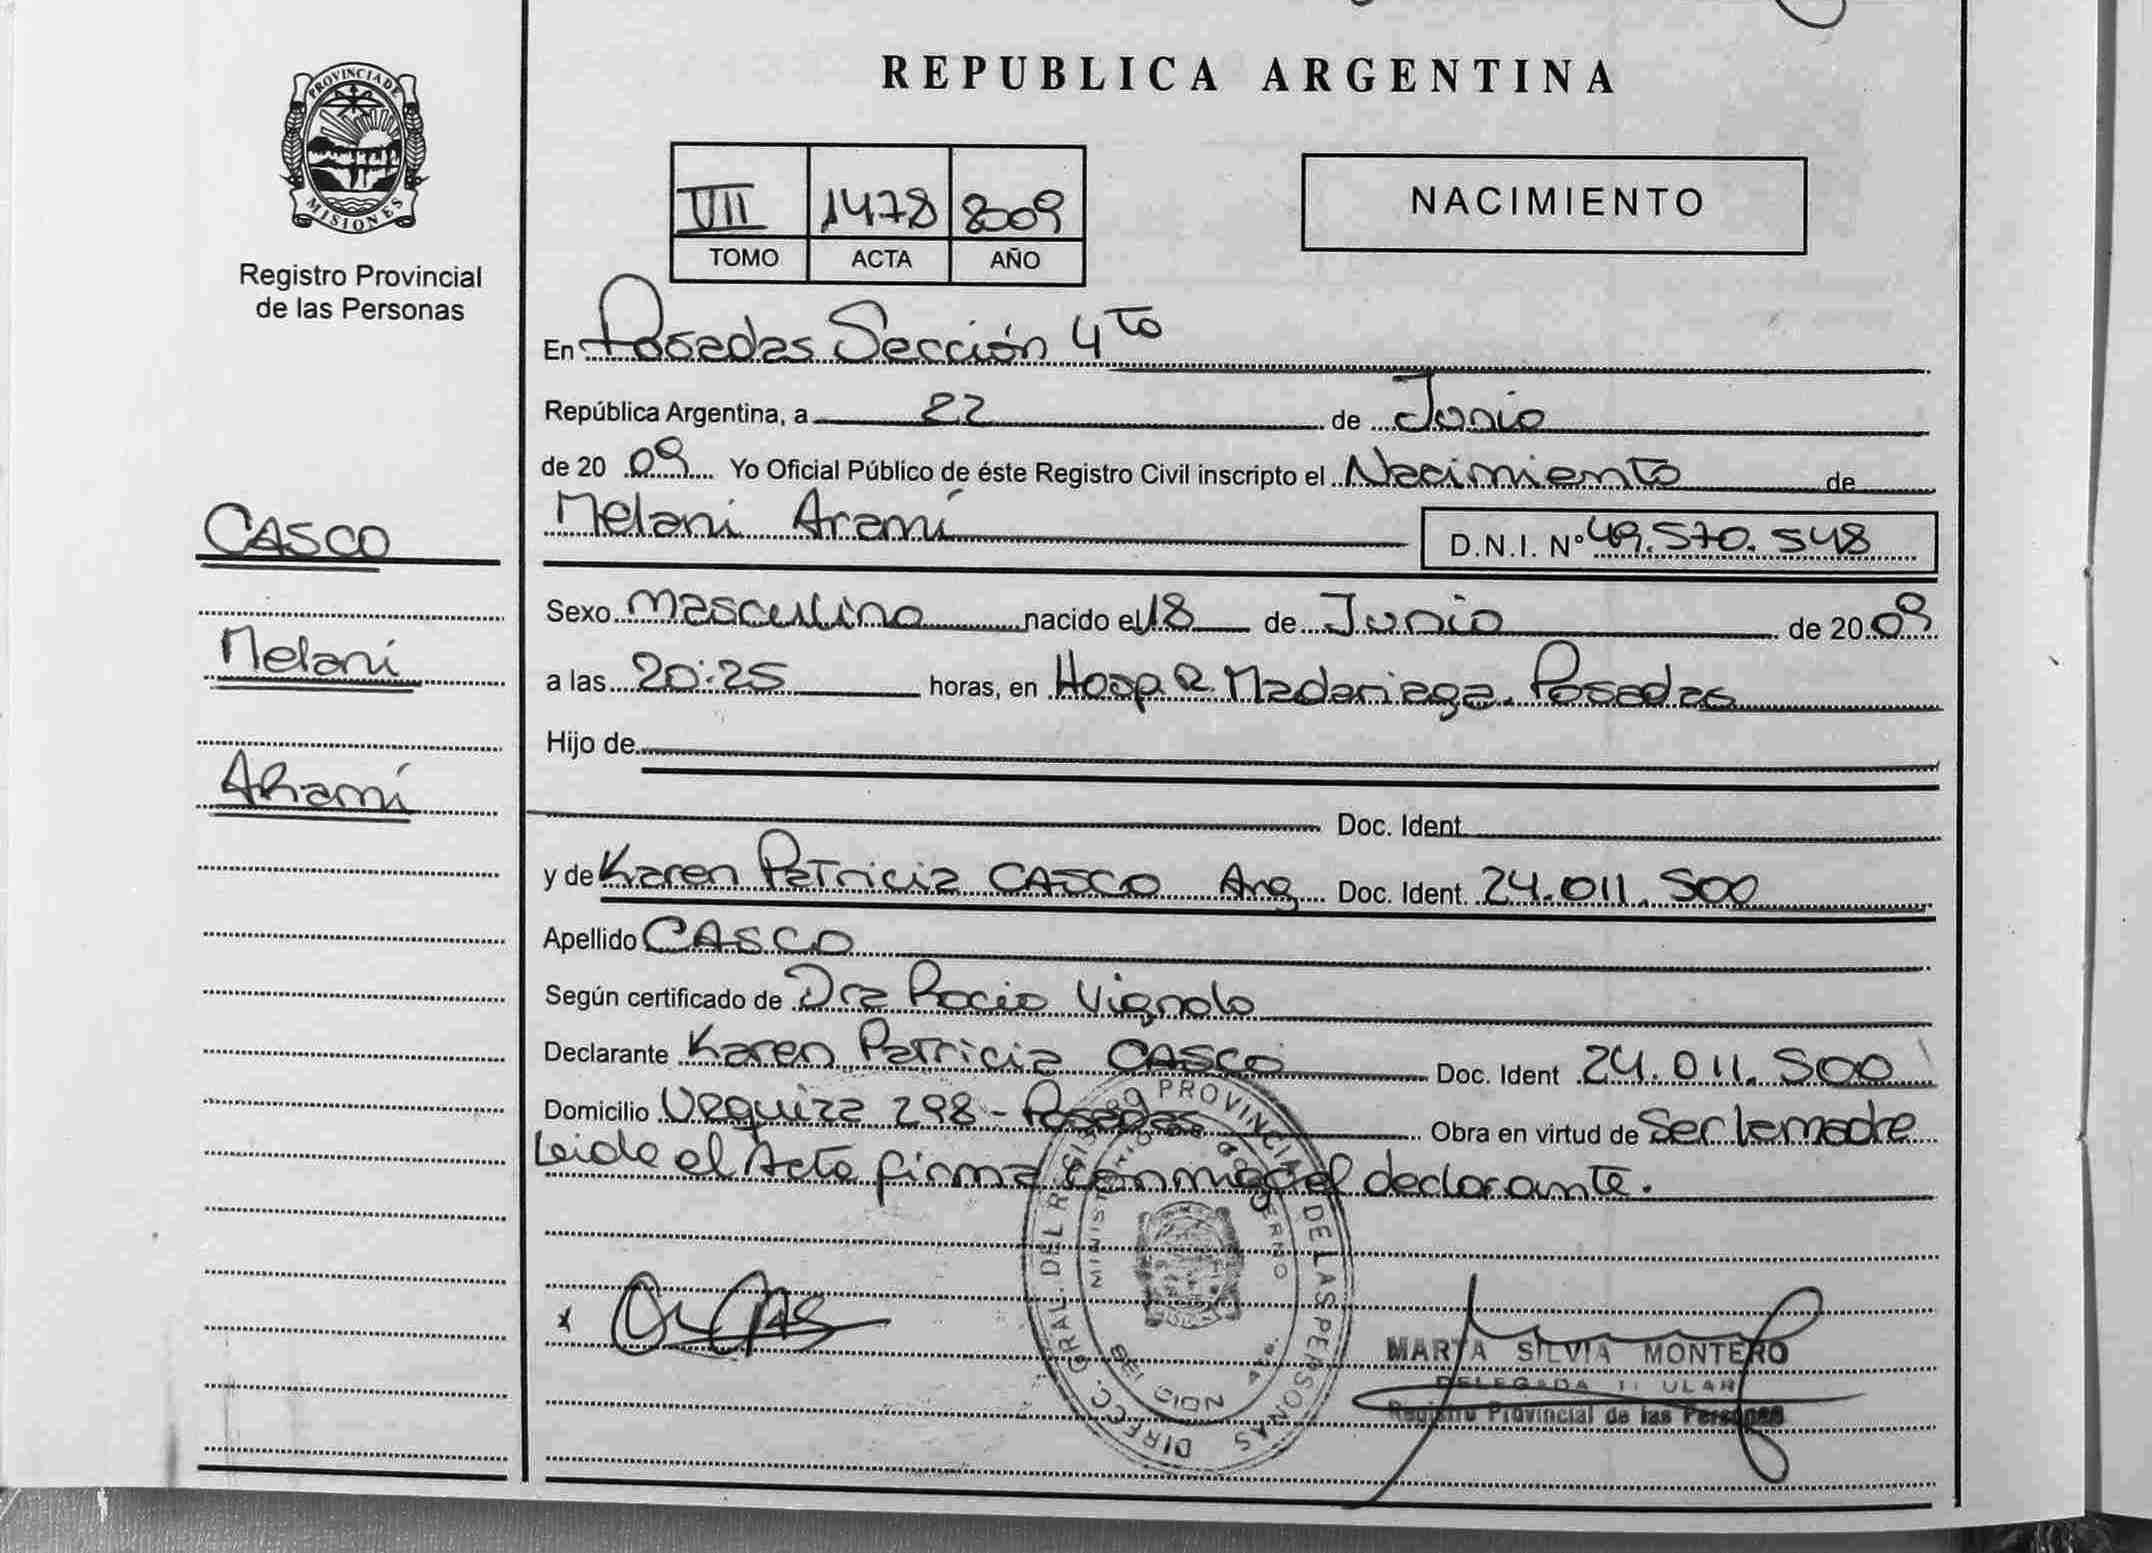 PROVINCIA DE
MISIONES
Registro Provincial
de las Personas
CASCO
Melani
Aramí
REPUBLICA ARGENTINA
VII 1478 2009
TOMO ACTA AÑO
NACIMIENTO
En Posadas Sección 4to
República Argentina, a 22 de Junio
de 20 09 Yo Oficial Público de éste Registro Civil inscripto el Nacimiento de
Melani Aramí D.N.I. N° 49.570.548
Sexo masculino nacido el 18 de Junio de 20 09
a las 20:25 horas, en Hosp R. Madariaga. Posadas
Hijo de
Doc. Ident.
y de Karen Patricia CASCO Arg Doc. Ident. 24.011.500
Apellido CASCO
Según certificado de Dra Rocio Vignolo
Declarante Karen Patricia CASCO Doc. Ident 24.011.500
Domicilio Urquiza 298 - Posadas Obra en virtud de Ser la madre
Leida el Acta firma conmigo el declarante.
DIRECC. GRAL. DEL REGISTRO PROVINCIAL DE LAS PERSONAS
MINISTERIO DE GOBIERNO
MARTA SILVIA MONTERO
DELEGADA TITULAR
Registro Provincial de las Personas